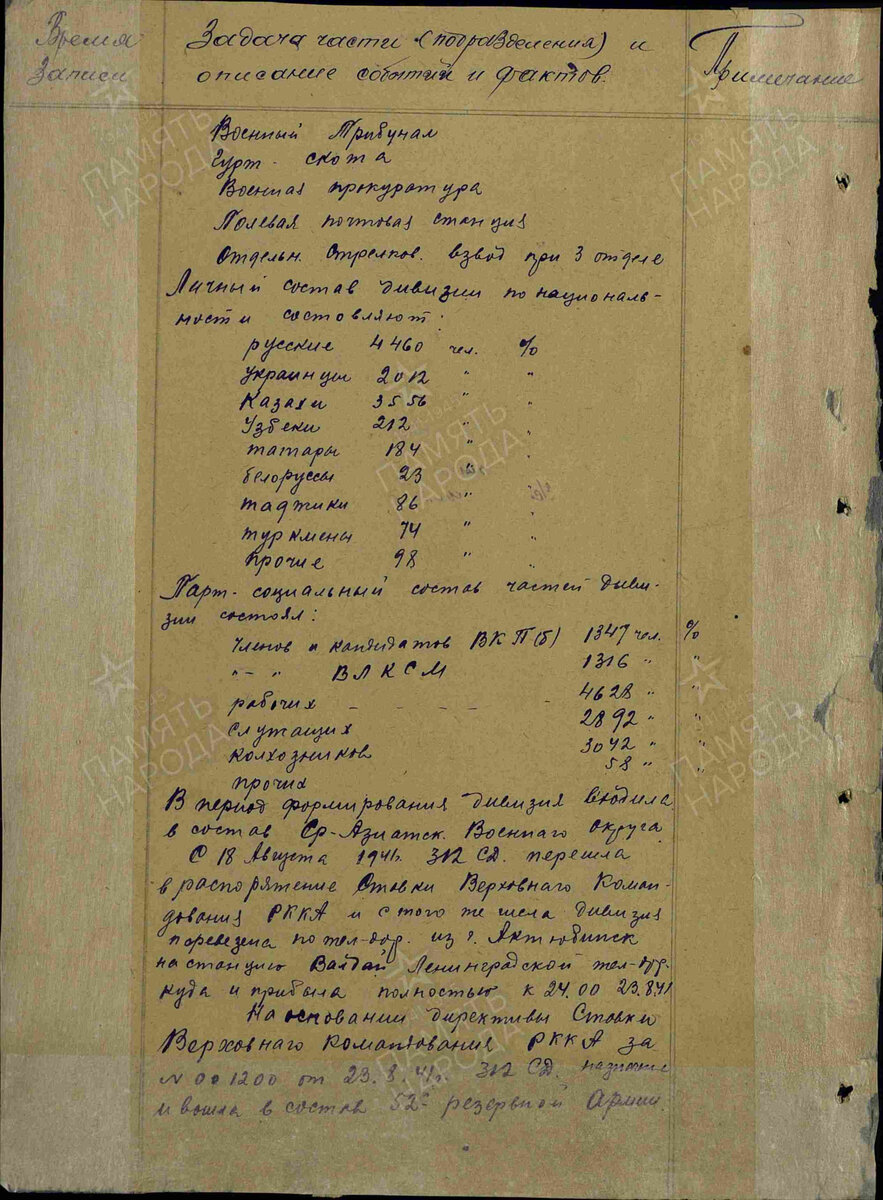 Время
Записи
Задача части (подразделения) и
описание событий и фактов.
Примечание
Военный Трибунал
Гурт - скота
Военная прокуратура
Полевая почтовая станция
Отдельн. Стрелков. взвод при 3 отделе
Личный состав дивизии по националь-
ности состовляют:
русские 4460 чел. %
украинцы 2012 " "
Казахи 3556 " "
Узбеки 212 " "
татары 184 " "
белоруссы 23 " "
таджики 86 " "
туркмены 74 " "
прочие 98 " "
Парт-социальный состав частей диви-
зии состоял:
Членов и кандидатов ВКП(б) 1347 чел. %
"-" ВЛКСМ 1316 " "
рабочих - - - - - 4628 " "
служащих 2892 " "
колхозников 3042 " "
прочих 58 " "
В период формирования дивизия входила
в состав Ср-Азиатск. Военнаго округа
С 18 Августа 1941г. 312 СД. перешла
в распоряжение Ставки Верховнаго Коман-
дования РККА и с того же числа дивизия
перевезена по жел-дор. из г. Актюбинск
на станцию Валдай Ленинградской жел-дор.
куда и прибыла полностью к 24.00 23.8.41
На основании директивы Ставки
Верховнаго Командования РККА за
№ 001200 от 23.8.41г. 312 СД.
и вошла в состав 52й резервной Армии.
ПАМЯТЬ
НАРОДА
ПАМЯТЬ
НАРОДА
ПАМЯТЬ
НАРОДА
ПАМЯТЬ
НАРОДА
ПАМЯТЬ
НАРОДА
ПАМЯТЬ
НАРОДА